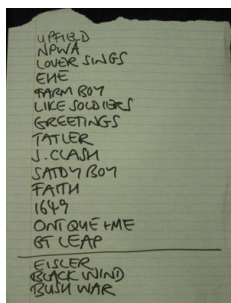 UPFIELD
NPWA
LOVER SINGS
EHE
FARM BOY
LIKE SOLDIERS
GREETINGS
TATLER
J. CLASH
SATDY BOY
FAITH
1649
ONT QUE + ME
GT LEAP
EISLER
BLACK WIND
BUSH WAR